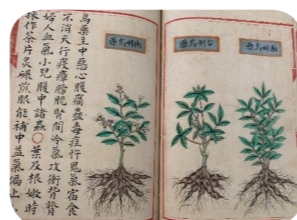 烏藥主中惡心腹痛蠱毒疰忤鬼氣宿食
不消天行疫瘴膀胱腎間冷氣攻衝背膂
婦人血氣小兒腹中諸蟲○葉及根嫩時
採作茶片炙碾煎服能補中益氣偏上